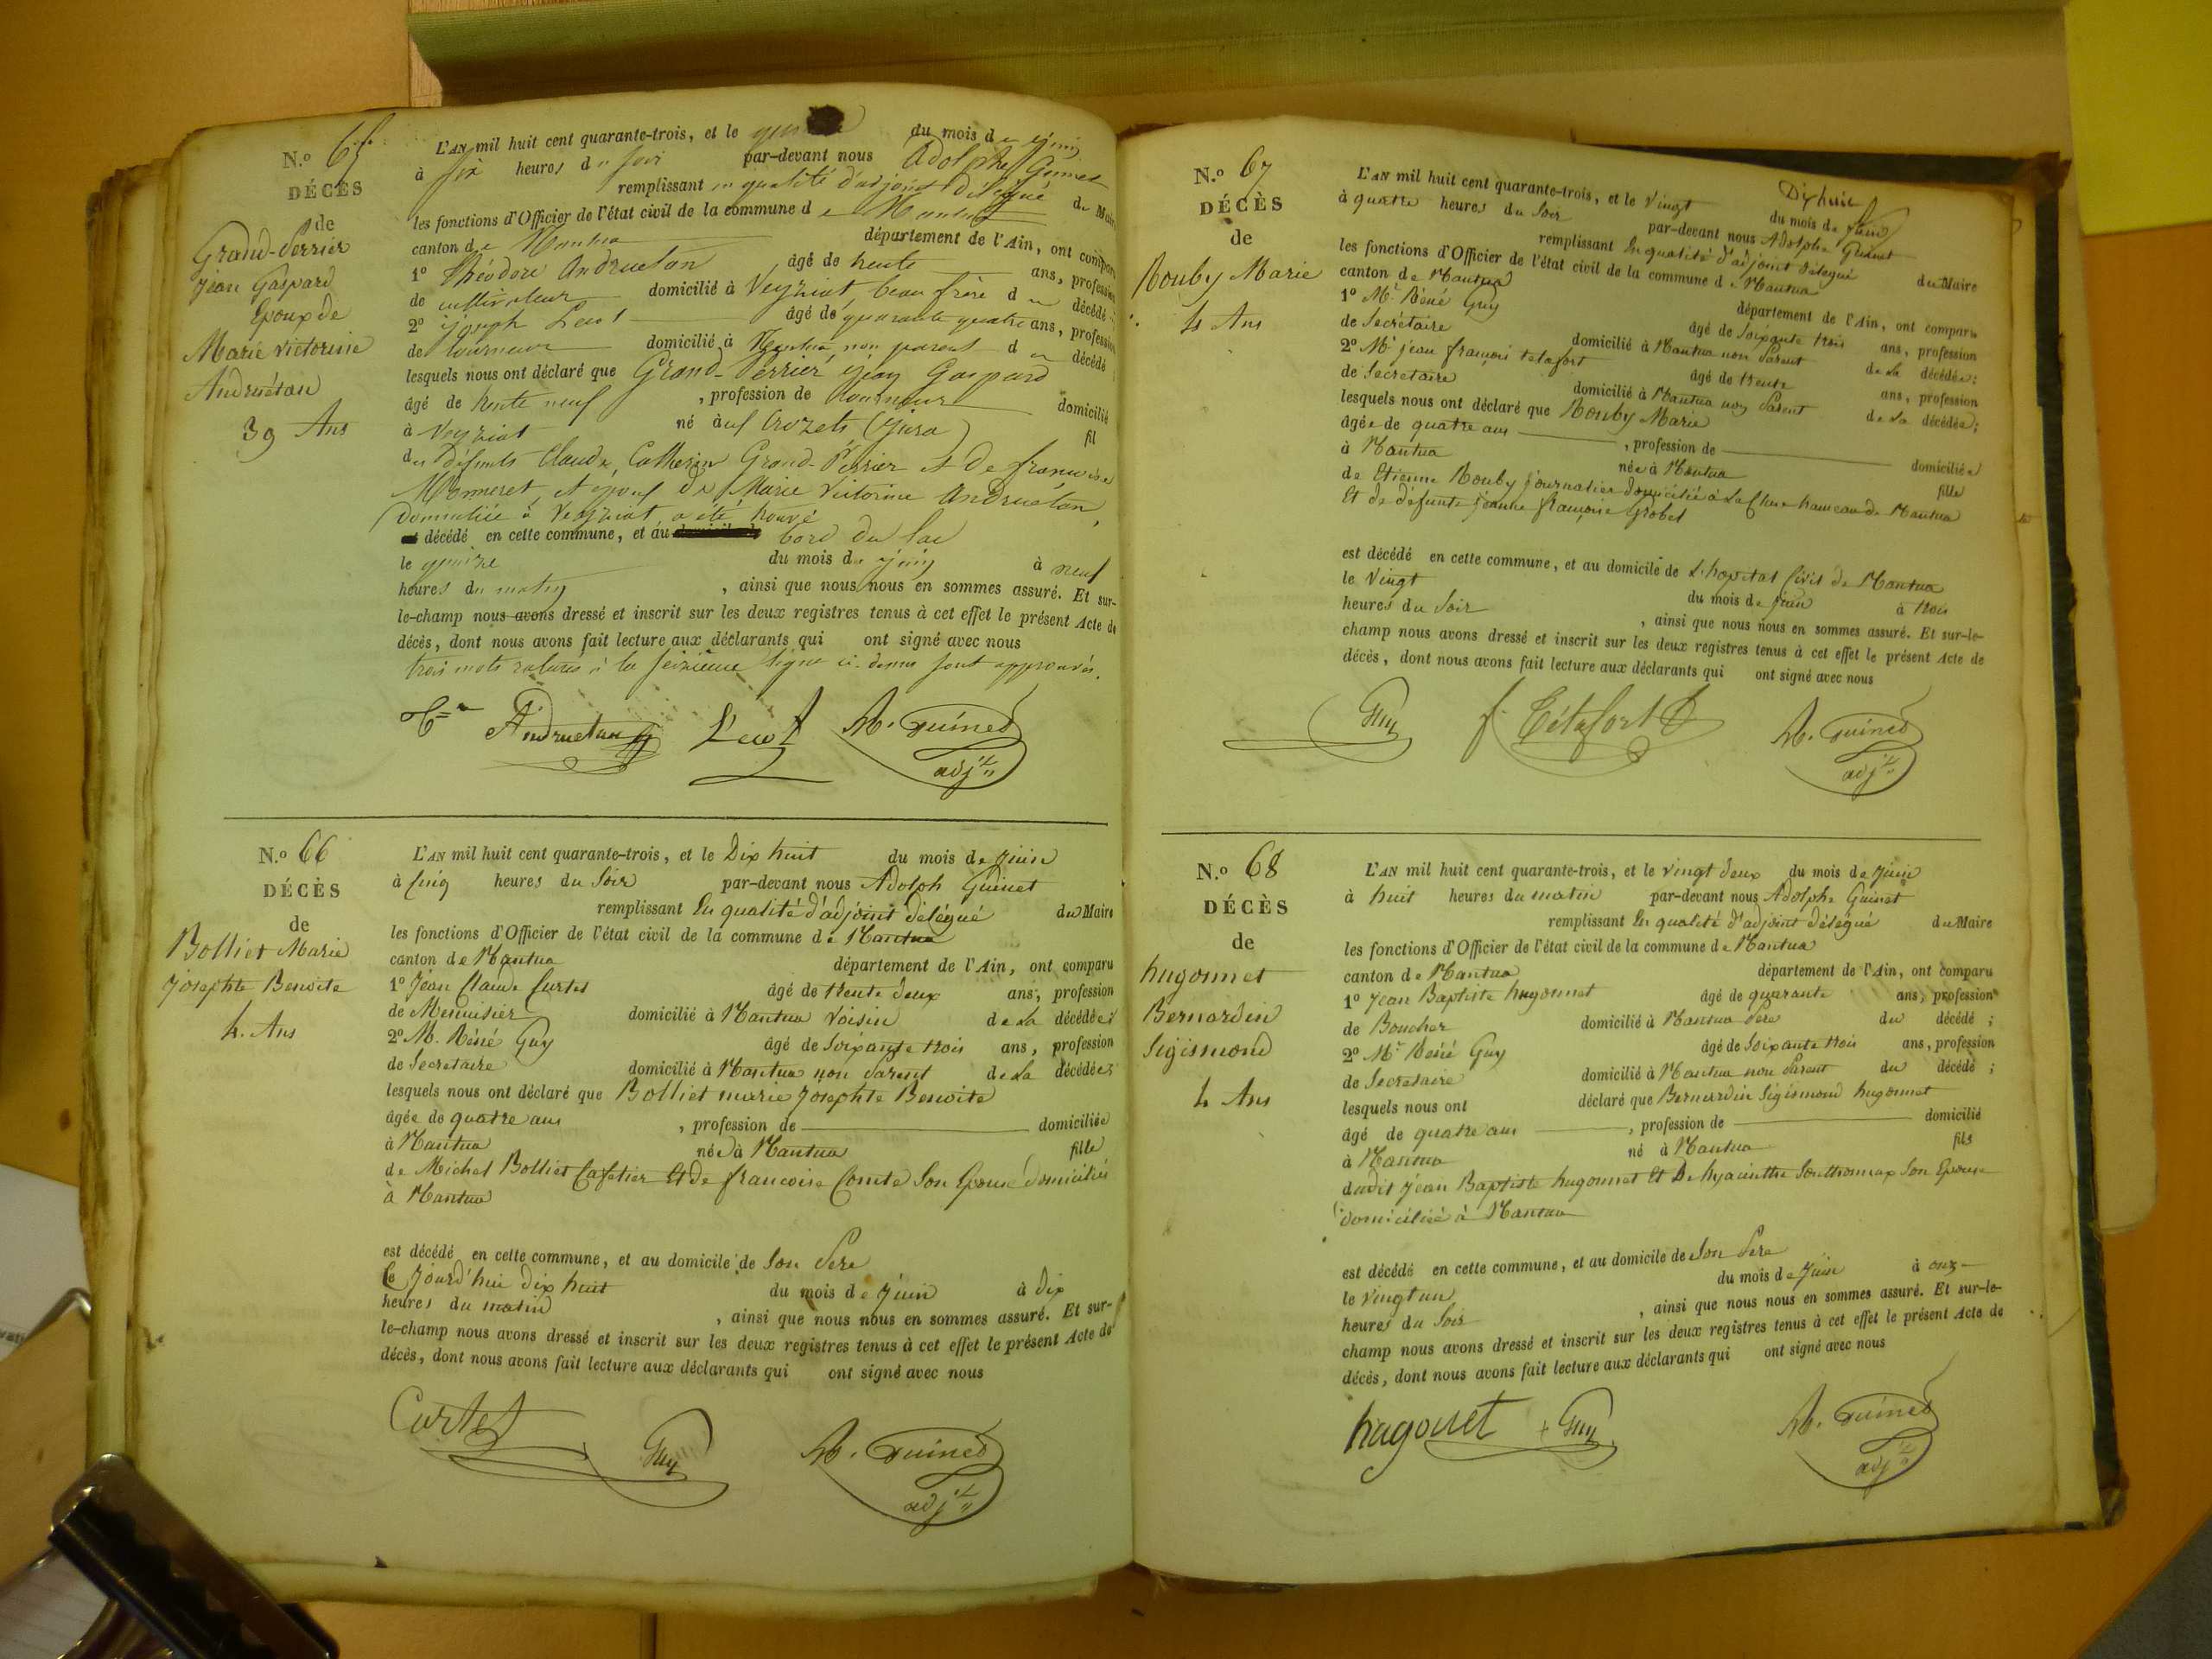 N.o 65
DÉCÈS
de
Grand-Perrier
Jean Gaspard
Epoux de
Marie Victorine
Andruétan
39 Ans
L'AN mil huit cent quarante-trois, et le du mois de juin
à six heures du soir par-devant nous Adolphe Guinet
remplissant en qualité d'adjoint délégué du Maire
les fonctions d'Officier de l'état civil de la commune de Nantua
canton de Nantua département de l'Ain, ont comparu
1o Théodore Andruetan âgé de trente ans, profession
de cultivateur domicilié à Veyziat, beau frère du décédé
2o Joseph âgé de quarante quatre ans, profession
de tourneur domicilié à Nantua non parent du décédé
lesquels nous ont déclaré que Grand-Perrier Jean Gaspard
âgé de trente neuf , profession de tourneur domicilié
à Veyziat né aux Crozets (Jura) fil
des défunts Claude, Catherin Grand-Perrier et de françoise
Monneret, et epoux de Marie Victorine Andruétan,
domiciliée à Veyziat a été trouvé
décédé en cette commune, et au bord du lac
le quinze du mois de juin à neuf
heures du matin , ainsi que nous nous en sommes assuré. Et sur-
le-champ nous avons dressé et inscrit sur les deux registres tenus à cet effet le présent Acte de
décès, dont nous avons fait lecture aux déclarants qui ont signé avec nous
trois mots raturés à la seizième ligne ci-dessus sont approuvés.
Andruetan A. Guinet
adjt
N.o 66
DÉCÈS
de
Bolliet Marie
Josephte Benoite
4. Ans
L'AN mil huit cent quarante-trois, et le Dix huit du mois de Juin
à Cinq heures du Soir par-devant nous Adolph Guinet
remplissant En qualité d'adjoint délégué du Maire
les fonctions d'Officier de l'état civil de la commune de Nantua
canton de Nantua département de l'Ain, ont comparu
1o Jean Claude Curtet âgé de trente deux ans, profession
de Menuisier domicilié à Nantua Voisin de La décédée;
2o M. Réné Guy âgé de Soixante trois ans, profession
de Secretaire domicilié à Nantua non Parent de La décédée;
lesquels nous ont déclaré que Bolliet marie Josephte Benoite
âgée de quatre ans , profession de domiciliée
à Nantua née à Nantua fille
de Michel Bolliet Cafetier Et de francoise Comte Son Epouse domiciliés
à Nantua
est décédé en cette commune, et au domicile de Son Pere
Ce Jourd'hui dix huit du mois de Juin à dix
heures du matin , ainsi que nous nous en sommes assuré. Et sur-
le-champ nous avons dressé et inscrit sur les deux registres tenus à cet effet le présent Acte de
décès, dont nous avons fait lecture aux déclarants qui ont signé avec nous
Curtet Guy A. Guinet
adjt
N.o 67
DÉCÈS
de
Rouby Marie
4 Ans
Dix huit
L'AN mil huit cent quarante-trois, et le Vingt du mois de Juin
à quatre heures du Soir par-devant nous Adolphe Guinet
remplissant En qualité d'adjoint délégué du Maire
les fonctions d'Officier de l'état civil de la commune de Nantua
canton de Nantua département de l'Ain, ont comparu
1o Mr Réné Guy âgé de Soixante trois ans, profession
de Secrétaire domicilié à Nantua non Parent de La décédée;
2o Mr jean françois tetafort âgé de trente ans, profession
de Secretaire domicilié à Nantua non Parent de La décédée;
lesquels nous ont déclaré que Rouby Marie
âgée de quatre ans , profession de domiciliée
à Nantua née à Nantua fille
de Etienne Rouby journalier domicilié à La Cluse hameau de Nantua
Et de défunte jeanne françoise Grobet
est décédé en cette commune, et au domicile de L'hopital Civil de Nantua
le Vingt du mois de Juin à trois
heures du Soir , ainsi que nous nous en sommes assuré. Et sur-le-
champ nous avons dressé et inscrit sur les deux registres tenus à cet effet le présent Acte de
décès, dont nous avons fait lecture aux déclarants qui ont signé avec nous
Guy f. Tétafort A. Guinet
adjt
N.o 68
DÉCÈS
de
hugonnet
Bernardin
Sigismond
4 Ans
L'AN mil huit cent quarante-trois, et le vingt deux du mois de Juin
à huit heures du matin par-devant nous Adolphe Guinet
remplissant En qualité d'adjoint délégué du Maire
les fonctions d'Officier de l'état civil de la commune de Nantua
canton de Nantua département de l'Ain, ont comparu
1o Jean Baptiste hugonnet âgé de quarante ans, profession
de Boucher domicilié à Nantua Pere du décédé ;
2o Mr Réné Guy âgé de Soixante trois ans, profession
de Secretaire domicilié à Nantua non Parent du décédé ;
lesquels nous ont déclaré que Bernardin Sigismond hugonnet
âgé de quatre ans , profession de domicilié
à Nantua né à Nantua fils
dudit Jean Baptiste hugonnet Et De hyacinthe Souttonnax Son Epouse
domiciliée à Nantua
est décédé en cette commune, et au domicile de Son Pere
le vingt un du mois de Juin à onze
heures du Soir , ainsi que nous nous en sommes assuré. Et sur-le-
champ nous avons dressé et inscrit sur les deux registres tenus à cet effet le présent Acte de
décès, dont nous avons fait lecture aux déclarants qui ont signé avec nous
hugonet Guy A. Guinet
adjt